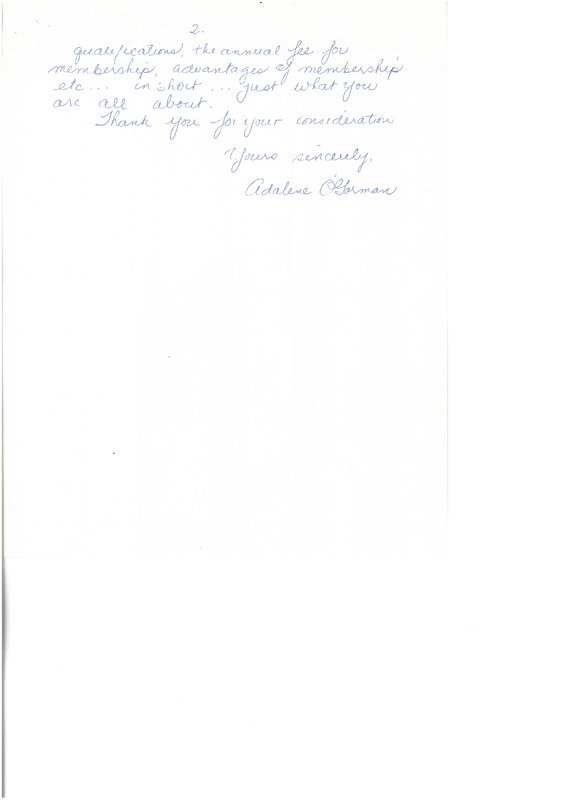 2.
qualifications, the annual fee for
membership, advantages of membership
etc... in short ... just what you
are all about.
Thank you for your consideration
Yours sincerely,
Adalene O'Gorman